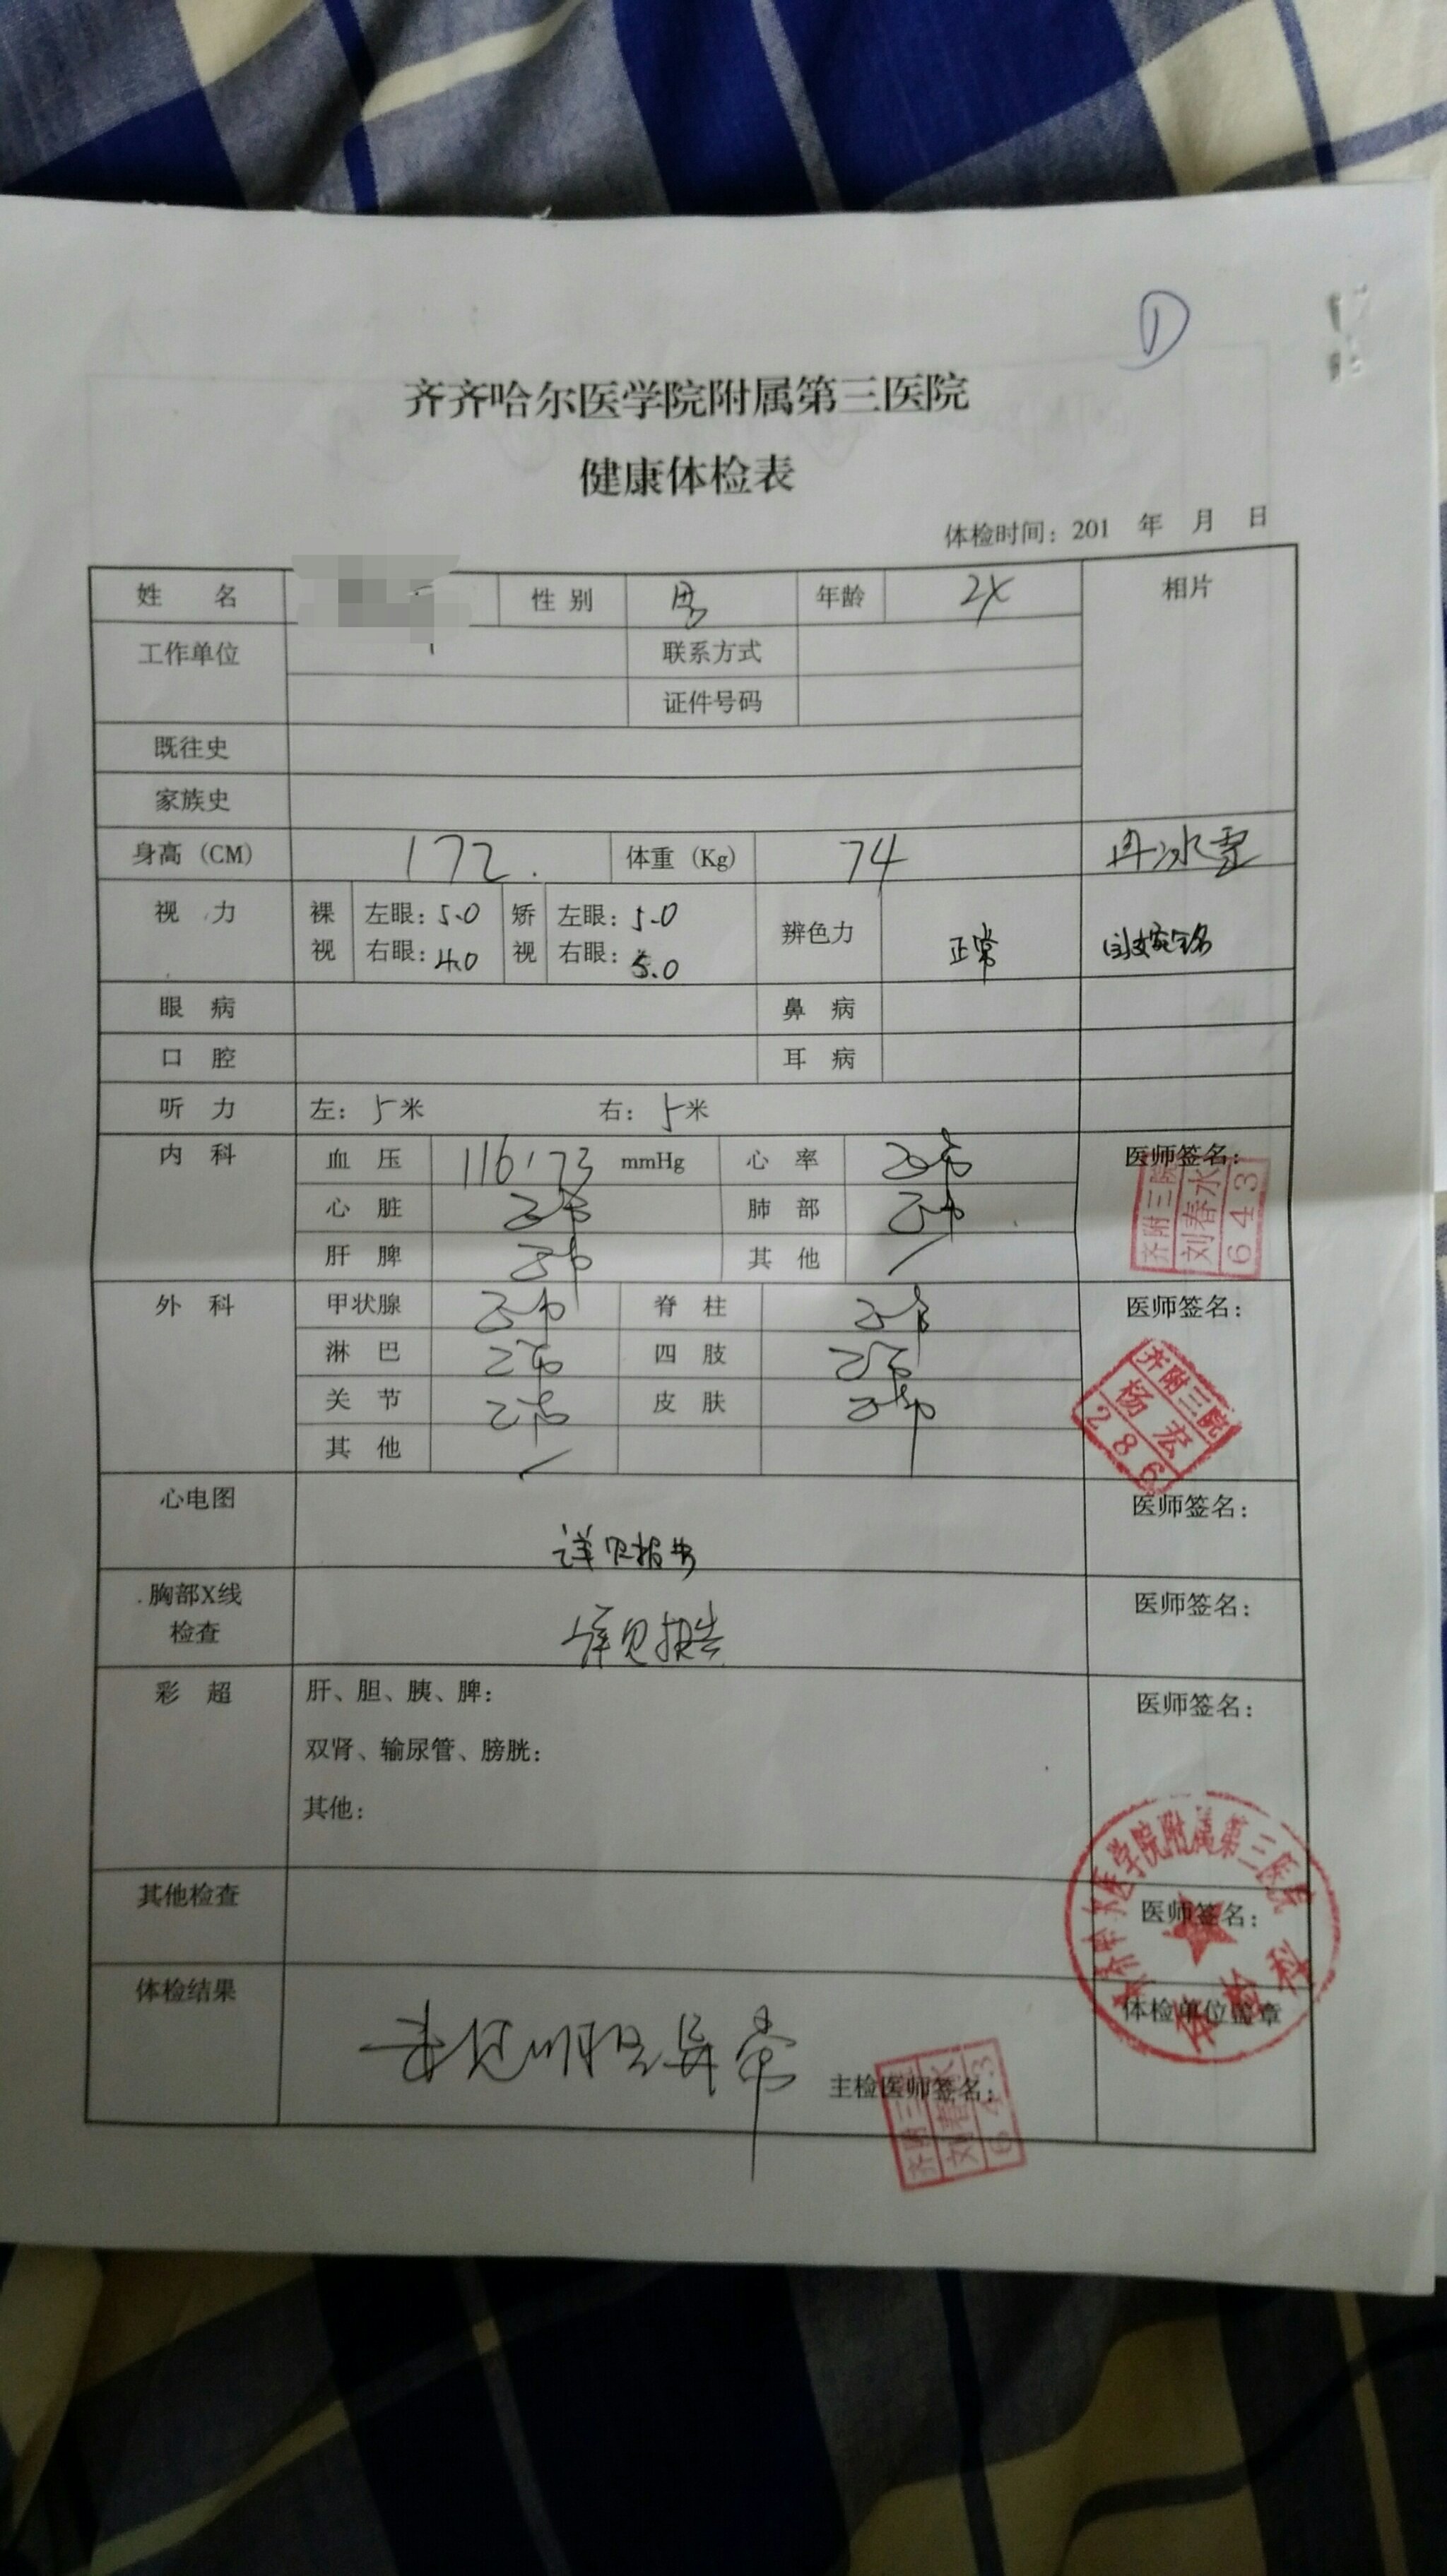 ①
齐齐哈尔医学院附属第三医院
健康体检表
体检时间：201 年 月 日
姓 名 性 别 男 年龄 2X 相片
工作单位 联系方式
证件号码
既往史
家族史
身高（CM） 172. 体重（Kg） 74
视 力 裸视 左眼：5.0 矫视 左眼：5.0 辨色力 正常
右眼：4.0 右眼：5.0
眼 病 鼻 病
口 腔 耳 病
听 力 左：5米 右：5米
内 科 血 压 116/73 mmHg 心 率 正常 医师签名：
心 脏 正常 肺 部 正常
肝 脾 正常 其 他 /
齐附三院
刘春水
6 4 3
外 科 甲状腺 正常 脊 柱 正常 医师签名：
淋 巴 正常 四 肢 正常
关 节 正常 皮 肤 正常
其 他 /
齐附三院
杨宏
2 8 6
心电图 详见报告 医师签名：
胸部X线检查 详见报告 医师签名：
彩 超 肝、胆、胰、脾： 医师签名：
双肾、输尿管、膀胱：
其他：
其他检查 医师签名：
齐齐哈尔医学院附属第三医院
体检科
体检结果 未见明显异常 体检单位盖章
主检医师签名：
齐附三院
刘春水
6 4 3